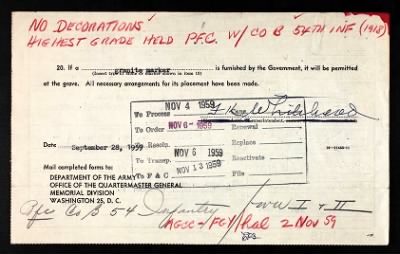 NO DECORATIONS
HIGHEST GRADE HELD P.F.C. W/ CO B 54TH INF (1918)
20. If a granite marker is furnished by the Government, it will be permitted
(Insert type of stone or marker shown in item 15)
at the grave. All necessary arrangements for its placement have been made.
NOV 4 1959
To Process
To Order NOV 6- 1959 Renewal
To Receip. Replace
Date September 28, 1959
To Transp. NOV 6 1959 Reactivate
To F & C NOV 13 1959 File
Mail completed forms to:
DEPARTMENT OF THE ARMY
OFFICE OF THE QUARTERMASTER GENERAL
MEMORIAL DIVISION
WASHINGTON 25, D. C.
Pfc Co B 54 Infantry WW I & II
2 Nov 59